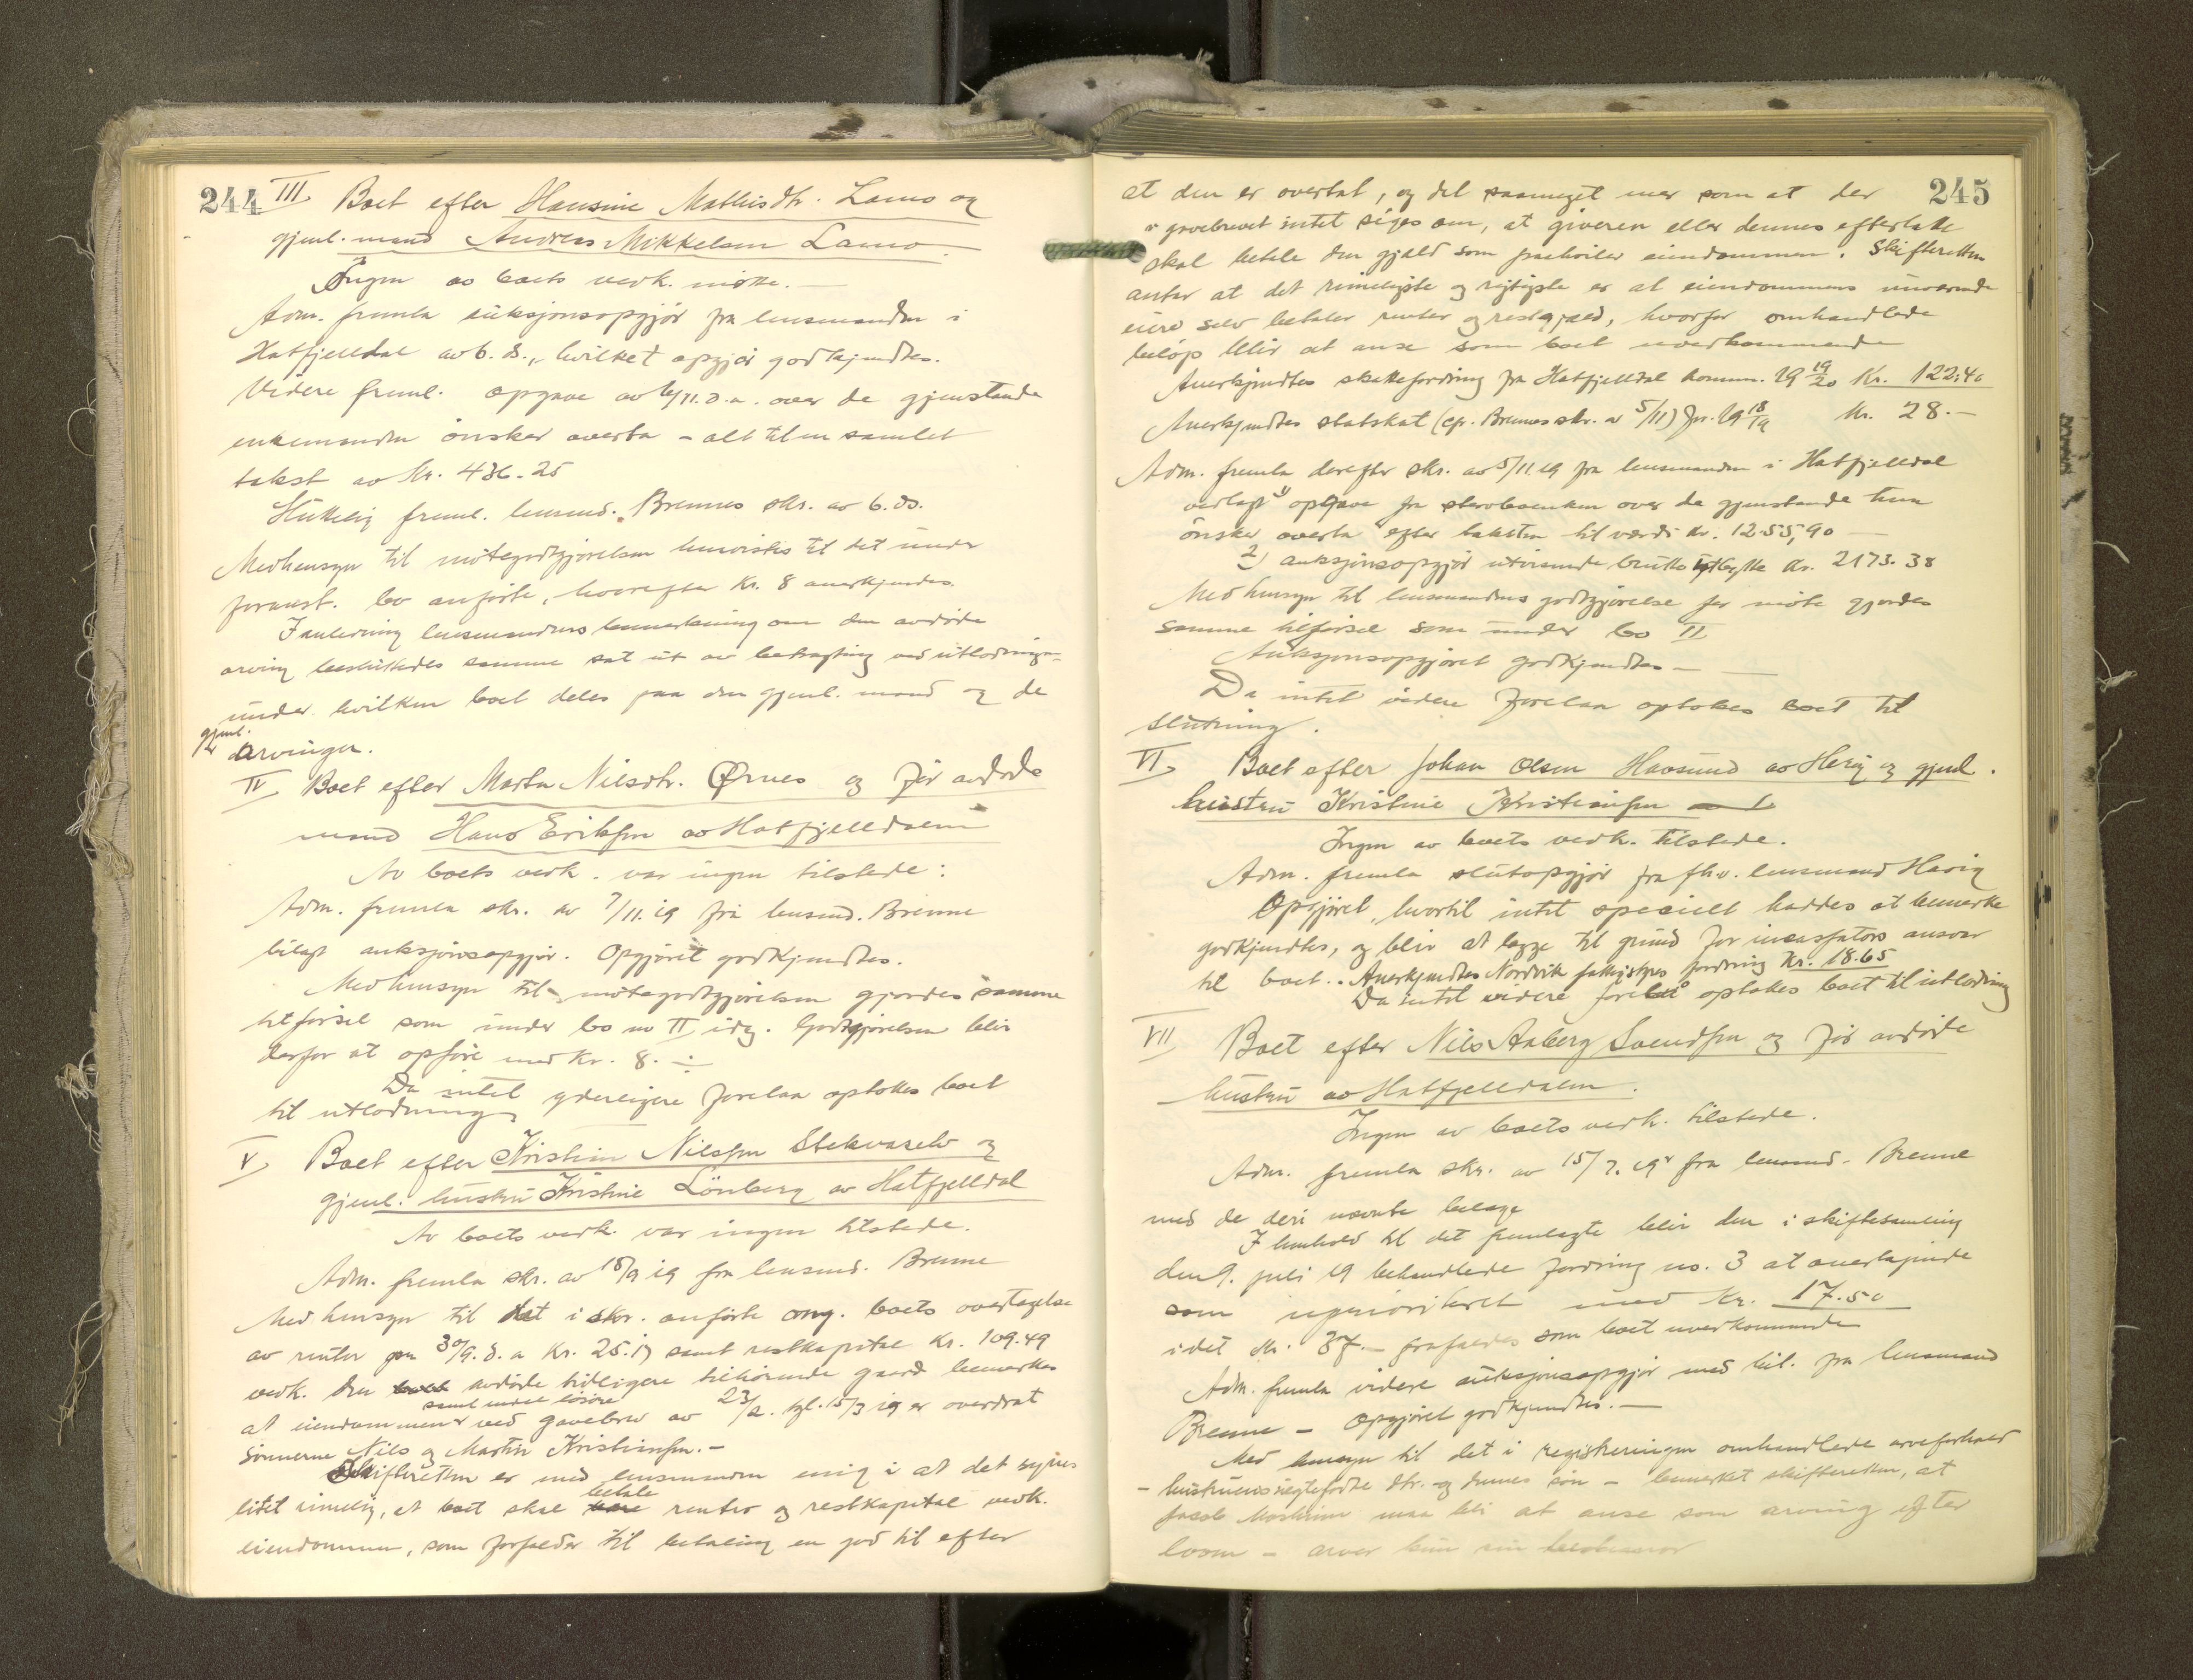 244
III Boet efter Hansine Mathisdtr. Lamo og
gjenl. mand Andreas Mikkelsen Lamo.
Ingen av boets vedk. møtte.
Adm. fremla auksjonsopgjör fra lensmanden i
Hatfjelldal av 6. ds., hvilket opgjör godkjendtes.
Videre freml. opgave av 6/11. d.a. over de gjenstande
enkemanden önsker overta - alt til en samlet
takst av Kr. 436.25
Endelig freml. lensmd. Brennes skr. av 6. ds.
Medhensyn til mötegodtgjörelsen henvistes til det under
foranst. bo anförte, hvorefter Kr. 8 anerkjendes.
I anledning lensmandens bemerkning om den avdöde
arving besluttedes samme sat ut av betragtning ved utlodningen
under hvilken boet deles paa den gjenl. mand og de
gjenl.
arvinger.
IV Boet efter Marta Nilsdtr. Ørnes og för avdöde
mand Hans Eriksen av Hatfjelldalen
Av boets vedk. var ingen tilstede:
Adm. fremla skr. av 7/11. 19 fra lensmd. Brenne
bilagt auksjonsopgjör. Opgjöret godkjendtes.
Med hensyn til mötegodtgjörelsen gjordes samme
tilförsel som under bo no II idag. Godtgjörelsen blir
derfor at opföre med Kr. 8.-
Da intet yderligere forelaa optokes boet
til utlodning
V Boet efter Kristian Nilssen Stekvaselv og
gjenl. hustru Kristine Lönberg av Hatfjelldal
Av boets vedk. var ingen tilstede.
Adm. fremla skr. av 18/9 19 fra lensmd. Brenne
Med hensyn til det i skr. anförte ang. boets overtagelse
av renter pr 30/9. d.a Kr. 25.17 samt restkapital Kr. 109.49
vedk. den avdöde tidligere tilhörende gaard bemerkes
samt endel lösöre
at eiendommen ved gavebrev av 23/2. tgl. 15/3 19 er overdrat
sönnerne Nils og Martin Kristiansen.-
Skifteretten er med lensmanden enig i at det synes
betale
litet rimelig, at boet skal renter og restkapital vedk.
eiendommen, som forfalder til betaling en god tid efter
245
at den er overtat, og det saameget mer som at der
i gavebrevet intet siges om, at giveren eller dennes efterlatte
skal betale den gjæld som paahviler eiendommen. Skifteretten
antar at det rimeligste og rigtigste er at eiendommens nuværende
eiere selv betaler renter og restgjæld, hvorfor omhandlede
belöp blir at anse som boet uvedkommende
Anerkjendtes skattefordring fra Hatfjelldal komm. 19 19/20 Kr. 122.40
Anerkjendtes statskat (cfr. Brennes skr. av 5/11) for 19 18/19 Kr. 28.-
Adm. fremla derefter skr. av 5/11 19 fra lensmanden i Hatfjelldal
vedlagt 1) opgave fra sterboenken over de gjenstande hun
önsker overta efter taksten til værdi Kr. 1255,90
2) auksjonsopgjör utvisende brutto utbytte Kr. 2173.38
Med hensyn til lensmandens godtgjörelse for möte gjordes
samme tilförsel som under bo II
Auksjonsopgjöret godkjendtes -
Da intet videre forelaa optokes boet til
slutning.
VI Boet efter Johan Olsen Havsund av Herøy og gjenl.
hustru Kristine Kristiansen
Ingen av boets vedk. tilstede.
Adm. fremla slutopgjör fra fhv. lensmand Havig
Opgjöret, hvortil intet specielt haddes at bemerke
godkjendtes, og blir at lægge til grund for incassators ansvar
til boet. Anerkjendtes Nordvik fattigstyres fordring Kr. 18.65
Da intet videre forelaa optokes boet til utlodning
VII Boet efter Nils Aaberg Svendsen og för avdöde
hustru av Hatfjelldalen.
Ingen av boets vedk. tilstede.
Adm. fremla skr. av 15/7. 19 fra lensmd. Brenne
med de deri nævnte bilage
I henhold til det fremlagte blir den i skiftesamling
den 9. juli 19 behandlede fordring no. 3 at anerkjende
som uprioritert med Kr. 17.50
idet Kr. 37.- frafaldes som boet uvedkommende
Adm. fremla videre auksjonsopgjör med bil. fra lensmand
Brenne - Opgjöret godkjendtes. -
Med hensyn til det i registreringen omhandlede arveforhold
- hustruens uegtefödte dtr. og dennes sön - bemerket skifteretten, at
maa bli at anse som arving efter
loven - arver kun sin